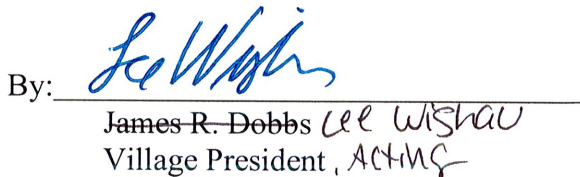 By: Lee Wish
James R. Dobbs Lee Wishau
Village President, Acting